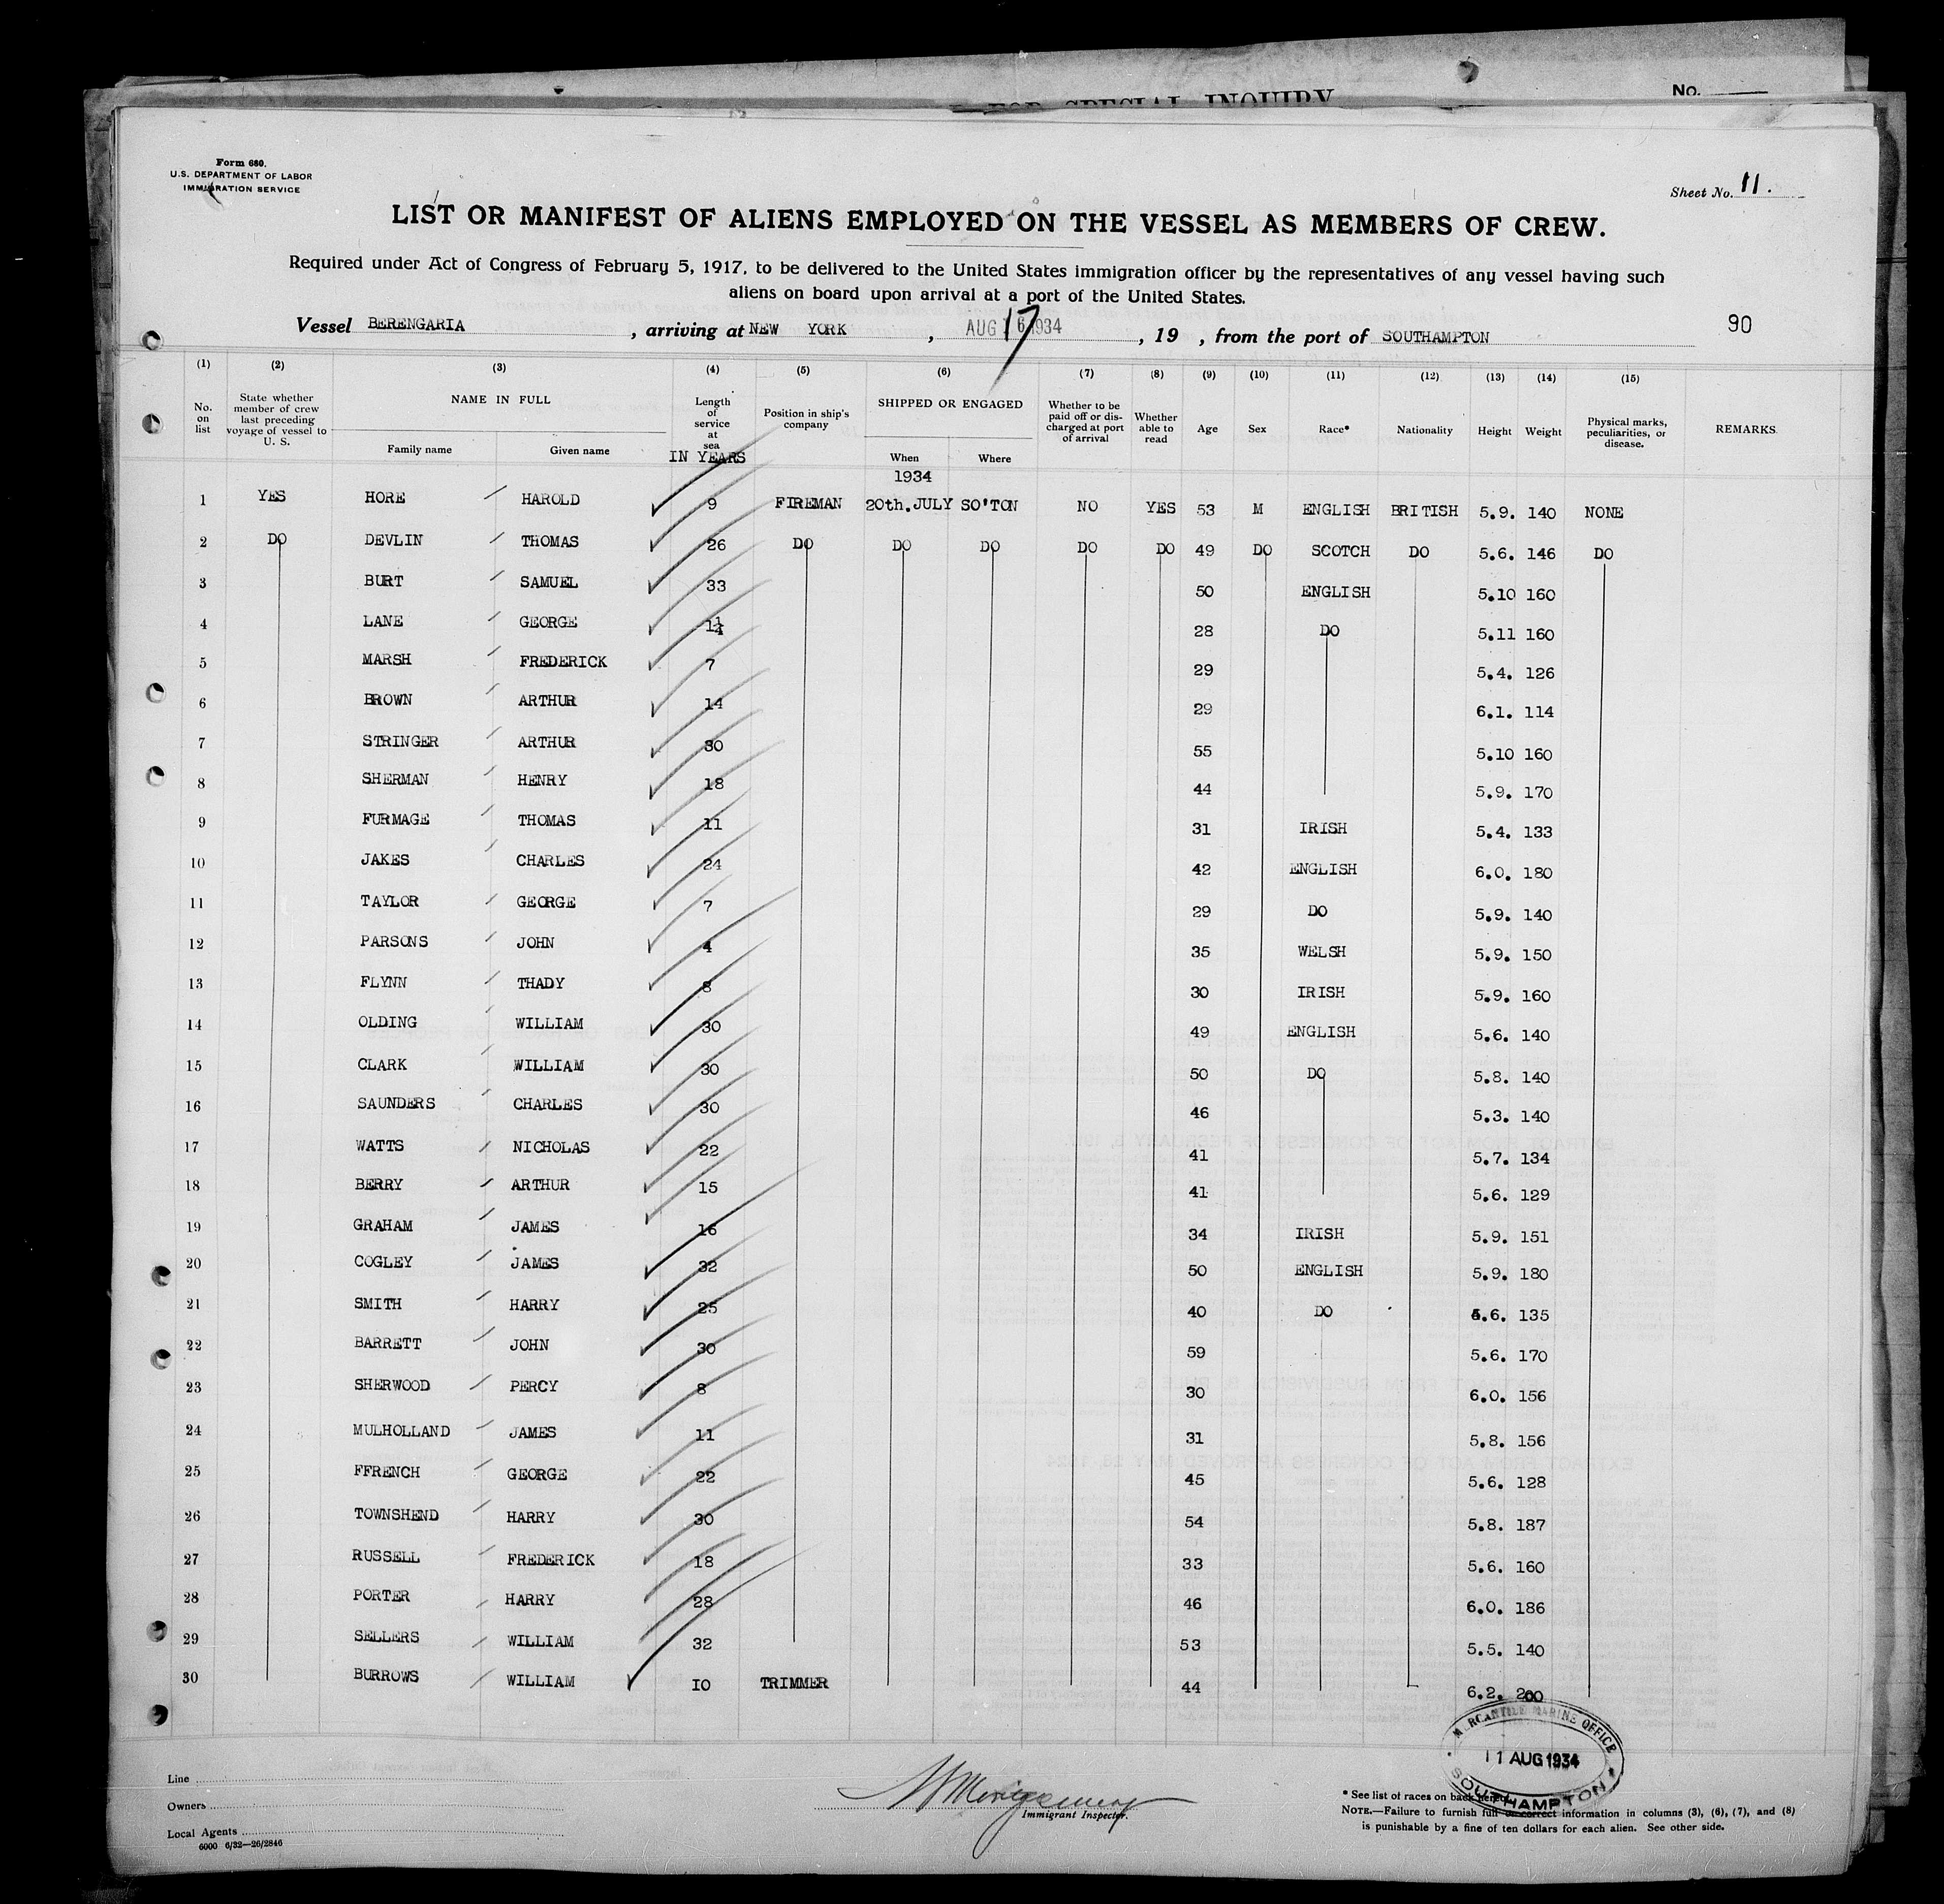 FOR SPECIAL INQUIRY
No.
Form 680.
U.S. DEPARTMENT OF LABOR
IMMIGRATION SERVICE
Sheet No. 11.
LIST OR MANIFEST OF ALIENS EMPLOYED ON THE VESSEL AS MEMBERS OF CREW.
Required under Act of Congress of February 5, 1917, to be delivered to the United States immigration officer by the representatives of any vessel having such
aliens on board upon arrival at a port of the United States.
Vessel BERENGARIA , arriving at NEW YORK , AUG 17 1934 , 19 , from the port of SOUTHAMPTON 90
(1) (2) (3) (4) (5) (6) (7) (8) (9) (10) (11) (12) (13) (14) (15)
No. on list State whether member of crew last preceding voyage of vessel to U. S. NAME IN FULL Family name Given name Length of service at sea IN YEARS Position in ship's company SHIPPED OR ENGAGED When Where Whether to be paid off or discharged at port of arrival Whether able to read Age Sex Race* Nationality Height Weight Physical marks, peculiarities, or disease. REMARKS.
1934
1 YES HORE HAROLD 9 FIREMAN 20th.JULY SO'TON NO YES 53 M ENGLISH BRITISH 5.9. 140 NONE
2 DO DEVLIN THOMAS 26 DO DO DO DO DO 49 DO SCOTCH DO 5.6. 146 DO
3 BURT SAMUEL 33 50 ENGLISH 5.10 160
4 LANE GEORGE 28 DO 5.11 160
5 MARSH FREDERICK 7 29 5.4. 126
6 BROWN ARTHUR 14 29 6.1. 114
7 STRINGER ARTHUR 30 55 5.10 160
8 SHERMAN HENRY 18 44 5.9. 170
9 FURMAGE THOMAS 11 31 IRISH 5.4. 133
10 JAKES CHARLES 24 42 ENGLISH 6.0. 180
11 TAYLOR GEORGE 7 29 DO 5.9. 140
12 PARSONS JOHN 4 35 WELSH 5.9. 150
13 FLYNN THADY 8 30 IRISH 5.9. 160
14 OLDING WILLIAM 30 49 ENGLISH 5.6. 140
15 CLARK WILLIAM 30 50 DO 5.8. 140
16 SAUNDERS CHARLES 30 46 5.3. 140
17 WATTS NICHOLAS 22 41 5.7. 134
18 BERRY ARTHUR 15 41 5.6. 129
19 GRAHAM JAMES 16 34 IRISH 5.9. 151
20 COGLEY JAMES 32 50 ENGLISH 5.9. 180
21 SMITH HARRY 25 40 DO 5.6. 135
22 BARRETT JOHN 30 59 5.6. 170
23 SHERWOOD PERCY 8 30 6.0. 156
24 MULHOLLAND JAMES 11 31 5.8. 156
25 FFRENCH GEORGE 22 45 5.6. 128
26 TOWNSHEND HARRY 30 54 5.8. 187
27 RUSSELL FREDERICK 18 33 5.6. 160
28 PORTER HARRY 28 46 6.0. 186
29 SELLERS WILLIAM 32 53 5.5. 140
30 BURROWS WILLIAM 10 TRIMMER 44 6.2. 200
MERCANTILE MARINE OFFICE
11 AUG 1934
SOUTHAMPTON
Line
Owners
Local Agents
6000 6/32—26/2846
Immigrant Inspector.
* See list of races on back hereof.
NOTE.—Failure to furnish full or correct information in columns (3), (6), (7), and (8)
is punishable by a fine of ten dollars for each alien. See other side.